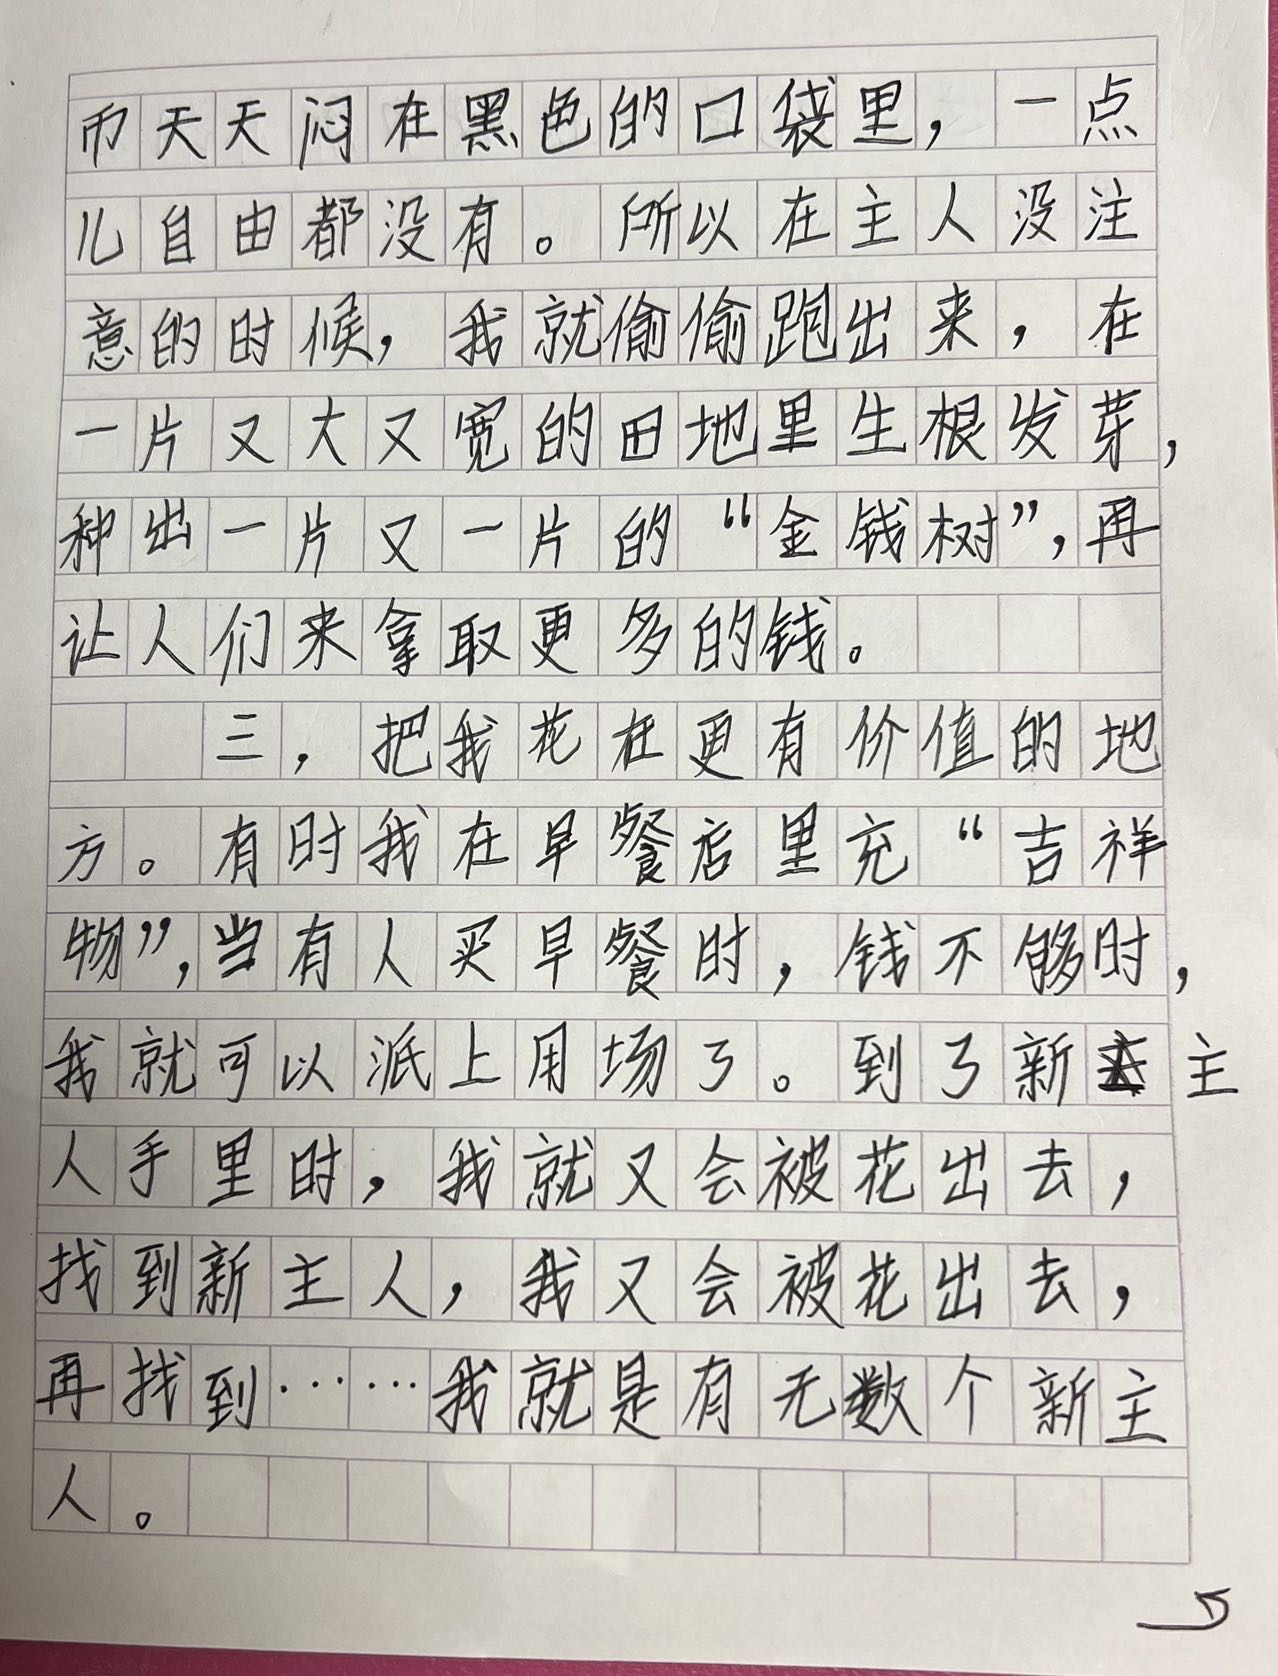 币天天闷在黑色的口袋里，一点
儿自由都没有。所以在主人没注
意的时候，我就偷偷跑出来，在
一片又大又宽的田地里生根发芽，
种出一片又一片的“金钱树”，再
让人们来拿取更多的钱。
三，把我花在更有价值的地
方。有时我在早餐店里充“吉祥
物”，当有人买早餐时，钱不够时，
我就可以派上用场了。到了新主
人手里时，我就又会被花出去，
找到新主人，我又会被花出去，
再找到……我就是有无数个新主
人。